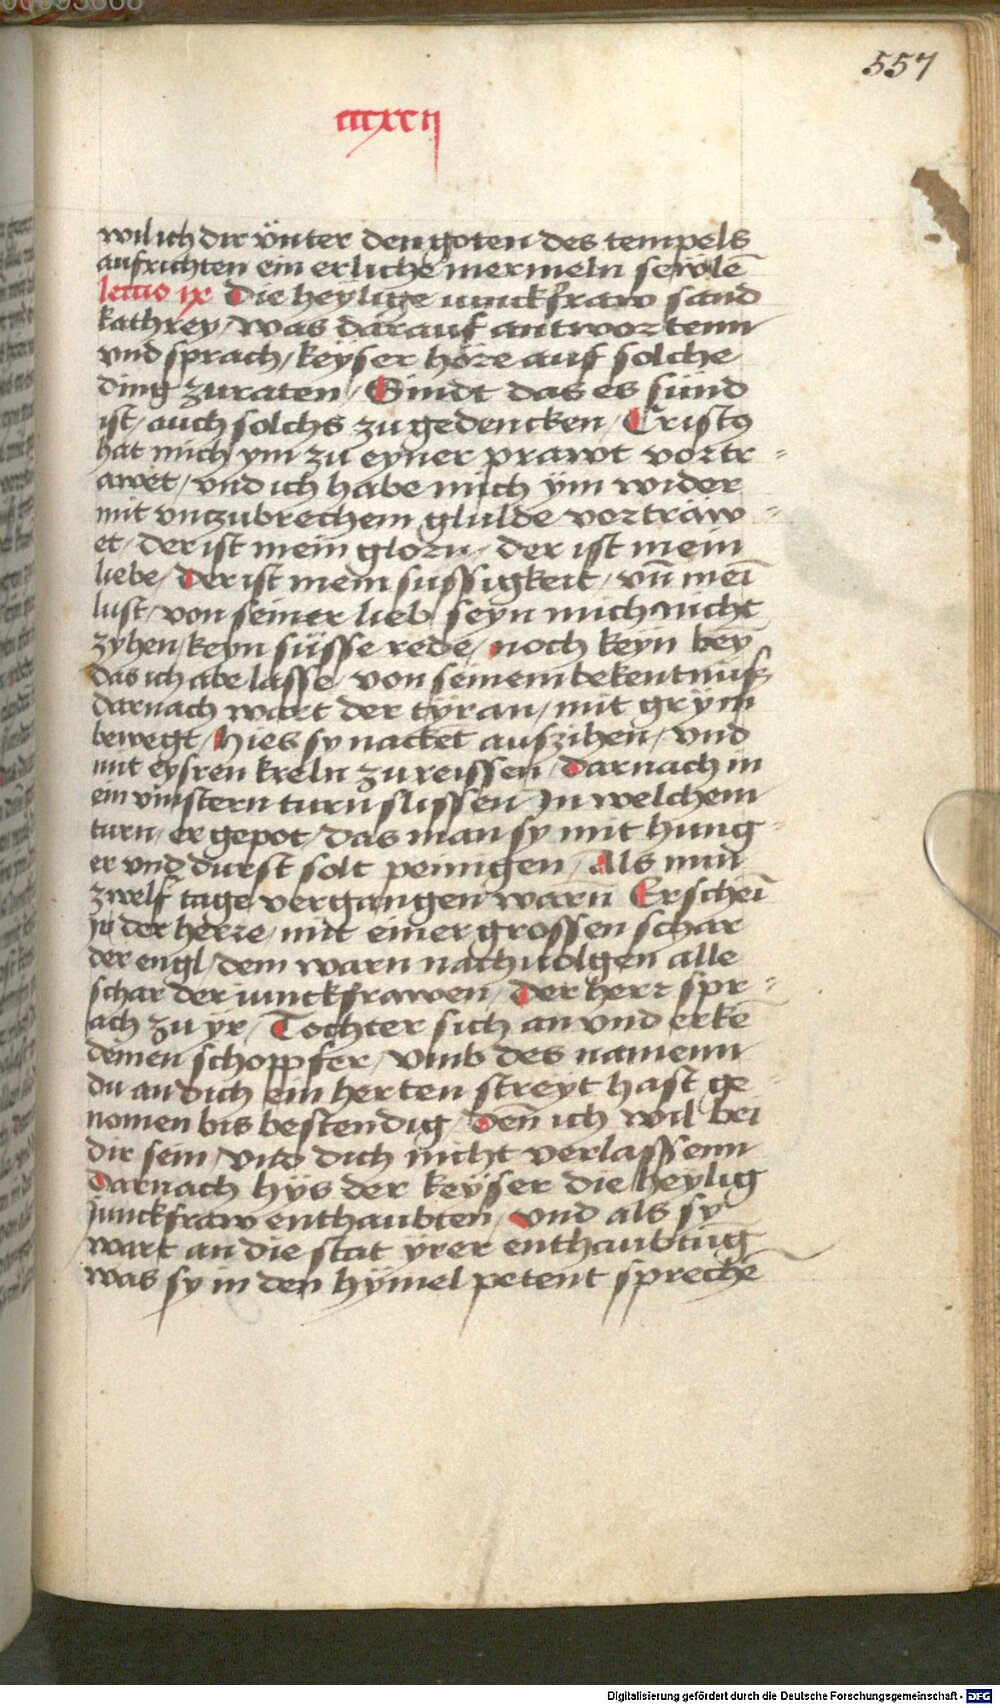 557
ccccxcii
wil ich dir vnter den goten des tempels
aufrichten ein erliche mermeln sewlē
lectio ix Die heylige iunckfraw sand
kathrey / was darauf antwortenn
vnd sprach / keyser höre auf solche
ding zu raten / Sindt das es sünd
ist / auch solchs zu gedencken / Cristꝯ
hat mich ym zu eyner prawt vortr-
awet / vnd ich habe mich ÿm wider
mit vnzubrechem glulde vortraw-
et / der ist mein glorii / der ist mein
liebe / Der ist mein sussigkeit / vn̄ mei
lust / von seiner lieb seyn mich nicht
zyhen / keyn süsse rede / noch keyn bey
das ich abe lasse von seinem bekentnuß
darnach wart der tÿran / mit grÿm
bewegt / Hies sy nacket aufzihen / vnd
mit eysren kreln zureissen / Darnach in
ein vinstern turn slissen / In welchem
turn / er gepot / das man sy mit hung-
er vnd durst solt peinigen / Als nun
zwelf tage vergangen warn Erschei
ir der herre / mit einer grossen schar
der engl / dem warn nachuolgen alle
schar der iunckfrawen / Der herr spr-
ach zu yr / Tochter sich an vnd erkē
deinen schoppfer / vmb des namenn
du an dich ein herten streyt hast ge-
nomen bis bestendig / Den̄ ich wil bei
dir sein / vnd dich nicht verlassenn
Darnach hÿs der keÿser die heylig
Junckfraw enthaubten / vnd als sy
wart an die stat ÿrer enthaubtūg
was sy in den hÿmel petent sprechē
Digitalisierung gefördert durch die Deutsche Forschungsgemeinschaft - DFG